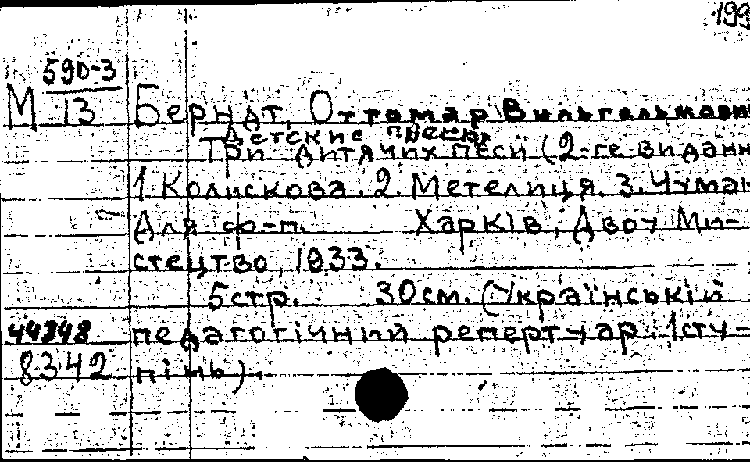 199
590-3
М 13 Бернат, Оттомар Вильгельмович
Детские пьесы
Три дитячих песи (2-ге видан
1. Колискова. 2. Метелиця. 3. Чумак
Для ф-п. Харків, Двоу Ми-
стецтво, 1933.
5 стр. 30 см. (Український
44348 педагогічний репертуар. 1 сту-
8342 пінь).